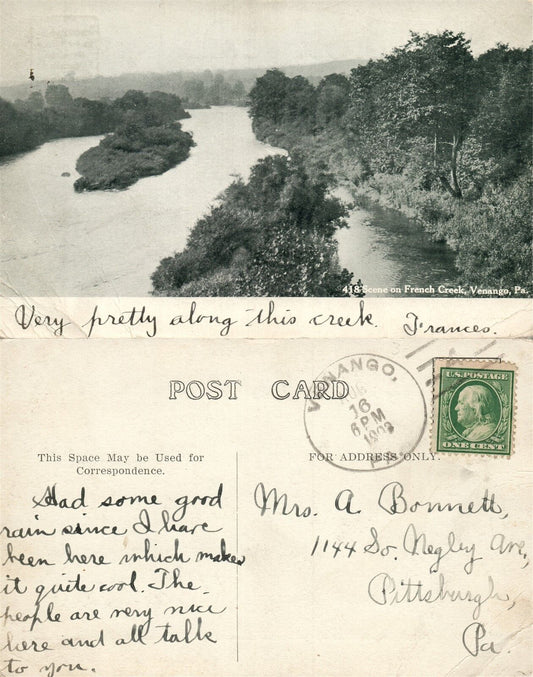 418 Scene on French Creek, Venango, Pa.
Very pretty along this creek. Frances.
POST CARD
VENANGO,
16
6 PM
PA.
U.S. POSTAGE
ONE CENT
This Space May be Used for
Correspondence.
FOR ADDRESS ONLY.
Had some good
rain since I have
been here which makes
it quite cool. The
people are very nice
here and all talk
to you.
Mrs. A. Bonnett,
1144 So. Negley Ave,
Pittsburgh,
Pa.